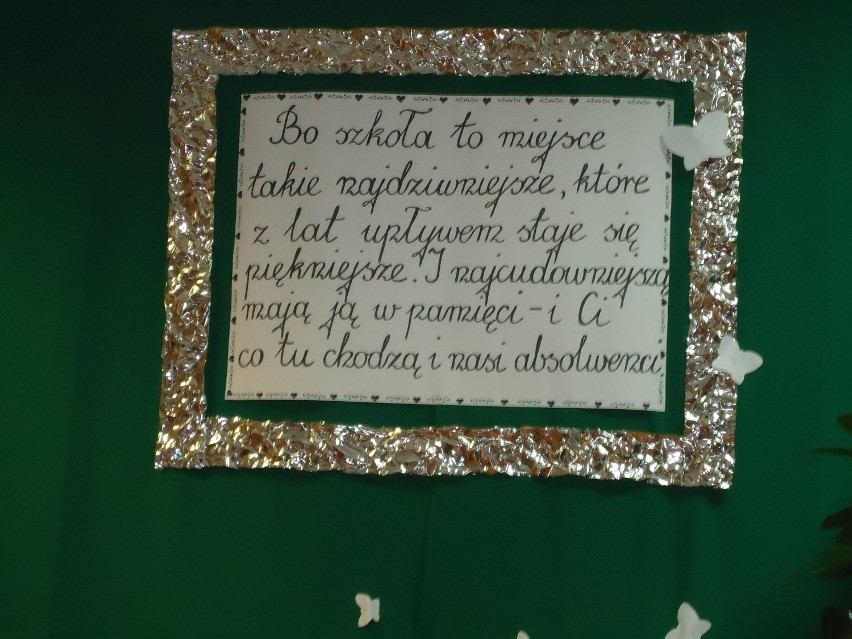 Bo szkoła to miejsce
takie najdziwniejsze, które
z lat upływem staje się
piękniejsze. I najcudowniejszą
mają ją w pamięci - i Ci
co tu chodzą i nasi absolwenci